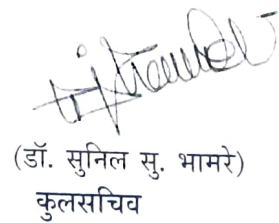 (डॉ. सुनिल सु. भामरे)
कुलसचिव